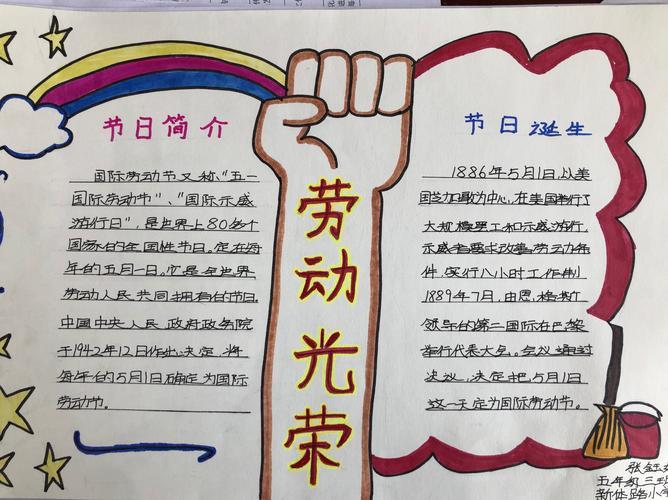 节日简介
国际劳动节又称"五一
国际劳动节"、"国际示威
游行日"，是世界上80多个
国家的全国性节日。定在每
年的五月一日。它是全世界
劳动人民共同拥有的节日。
中国中央人民政府政务院
于1942年12日作出决定，将
每年的5月1日确定为国际
劳动节。
劳动光荣
节日诞生
1886年5月1日，以美
国芝加哥为中心，在美国举行了
大规模罢工和示威游行，
示威者要求改善劳动条
件，实行八小时工作制
1889年7月，由恩格斯
领导的第二国际在巴黎
举行代表大会。会议通过
决议，决定把5月1日
这一天定为国际劳动节。
张钰
五年级三
新体路小学